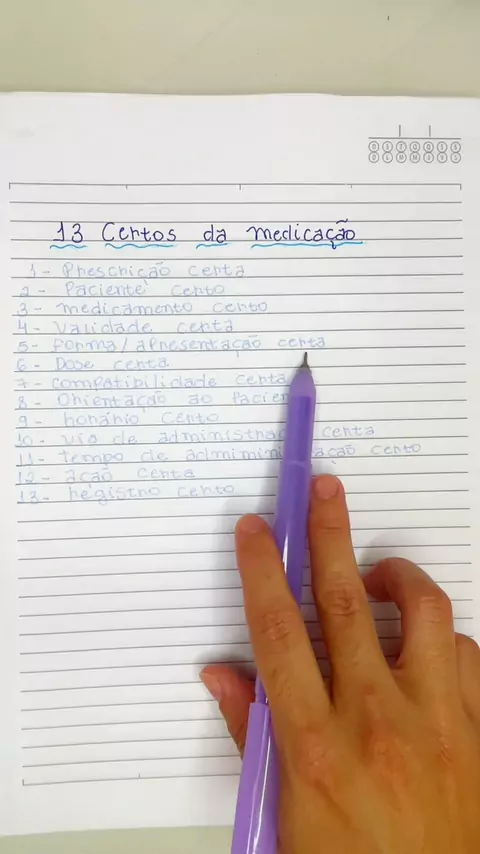 13 Certos da medicação
1- Prescrição certa
2- Paciente certo
3- medicamento certo
4- Validade certa
5- forma/apresentação certa
6- Dose certa
7- compatibilidade certa
8- Orientação ao
9- horário certo
10- via de certa
11- tempo de certo
12- ação certa
13- registro certo